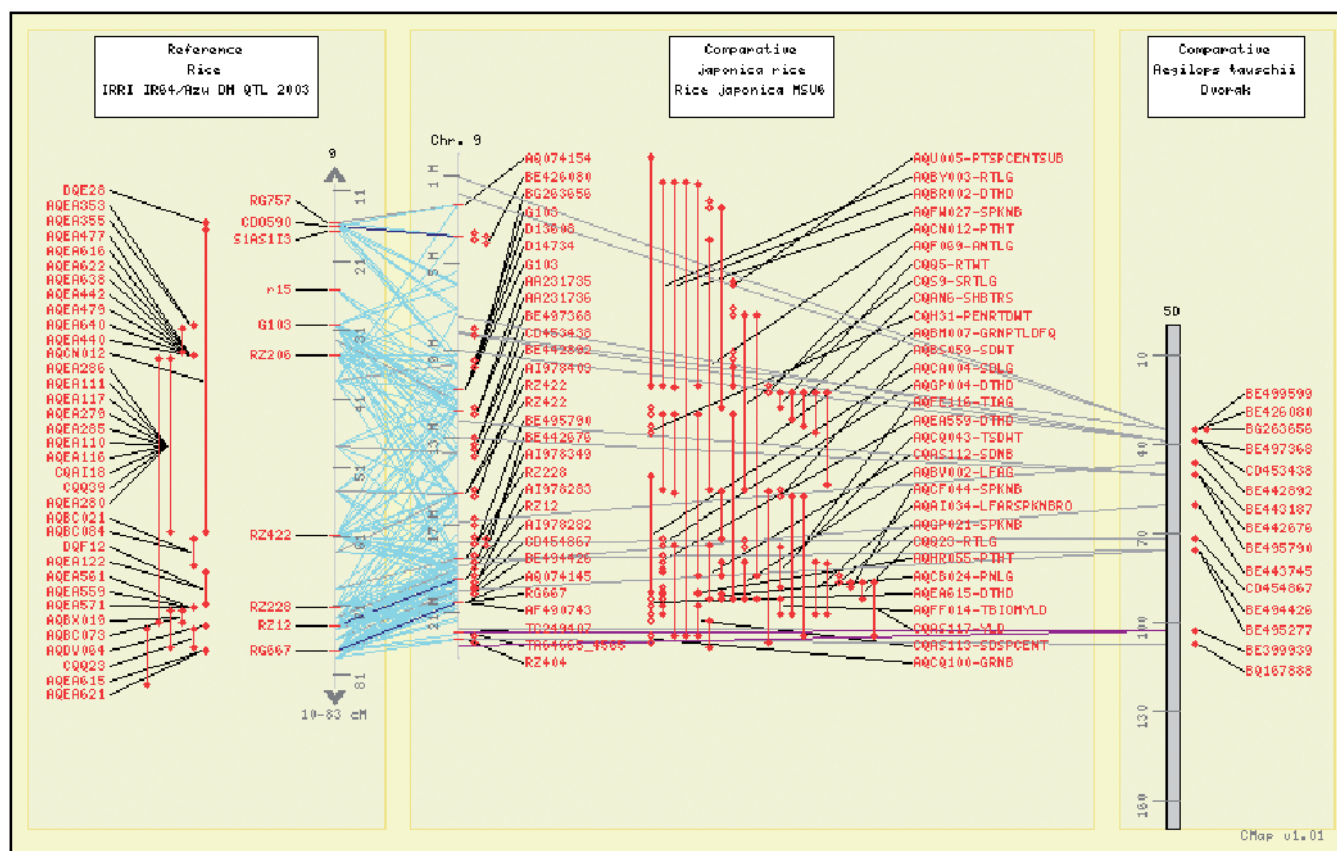 Reference
Rice
IRRI IR64/Azu DH QTL 2003
9
DQE28
AQEA353
AQEA355
AQEA477
AQEA616
AQEA622
AQEA638
AQEA442
AQEA479
AQEA640
AQEA440
AQCN012
AQEA286
AQEA111
AQEA117
AQEA279
AQEA285
AQEA110
AQEA116
CQAI18
CQQ39
AQEA280
AQBC021
AQBC084
DQF12
AQEA122
AQEA561
AQEA559
AQEA571
AQBX019
AQBC073
AQDV064
CQQ23
AQEA615
AQEA621
RG757
CDO590
r15
G103
RZ206
RZ422
RZ228
RZ12
RG667
11
21
31
41
51
61
81
10-83 cM
Comparative
japonica rice
Rice japonica MSU6
Chr. 9
1 M
5 M
13 M
17 M
AQ074154
BE426080
BG263656
G103
D14734
G103
AA231735
AA231736
BE497368
CD453438
BE442892
AI978409
RZ422
RZ422
BE495790
BE442676
AI978349
RZ228
AI978283
RZ12
AI978282
CD454867
BE494426
AQ074145
RG667
AF490743
RZ404
AQU005-PTSPCENTSUB
AQBY003-RTLG
AQBR002-DTHD
AQFW027-SPKNB
AQCN012-PTHT
AQF069-ANTLG
CQQ5-RTWT
CQS9-SRTLG
CQAN6-SHBTRS
CQH31-PENRTDWT
AQBM007-GRNPTLDFQ
AQBS059-SDWT
AQCA004-SDLG
AQGP004-DTHD
AQFE116-TIAG
AQEA559-DTHD
AQCQ043-TSDWT
CQAS112-SDNB
AQBV002-LFAG
AQCF044-SPKNB
AQAI034-LFARSPKNBBRO
AQGP021-SPKNB
CQQ23-RTLG
AQHR055-PTHT
AQCB024-PNLG
AQEA615-DTHD
AQFF014-TBIOMYLD
CQAS117-YLD
CQAS113-SDSPCENT
AQCQ100-GRNB
Comparative
Aegilops tauschii
Dvorak
5D
10
40
70
100
130
160
BE499599
BE426080
BG263656
BE497368
CD453438
BE442892
BE443187
BE442676
BE495790
BE443745
CD454867
BE494426
BE495277
BE399939
BQ167888
CMap v1.01